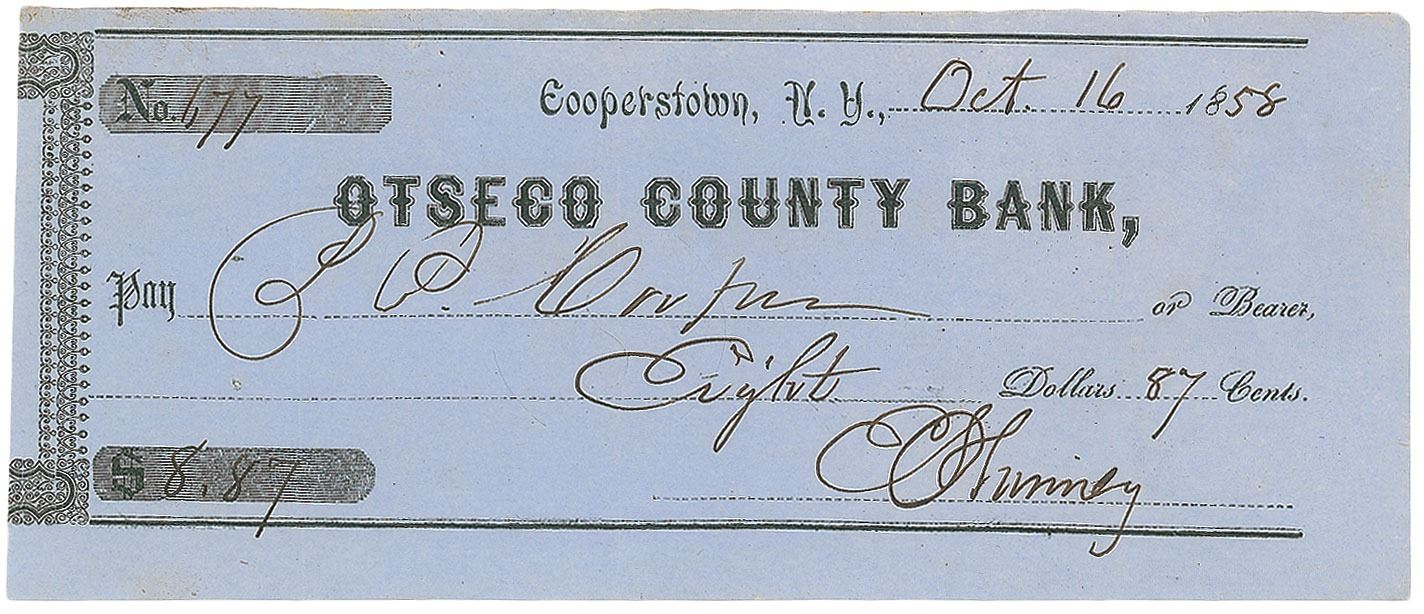 No. 677
Cooperstown, N. Y., Oct. 16 1858
OTSEGO COUNTY BANK,
Pay P. Cooper or Bearer,
Eight Dollars 87 Cents.
$ 8.87